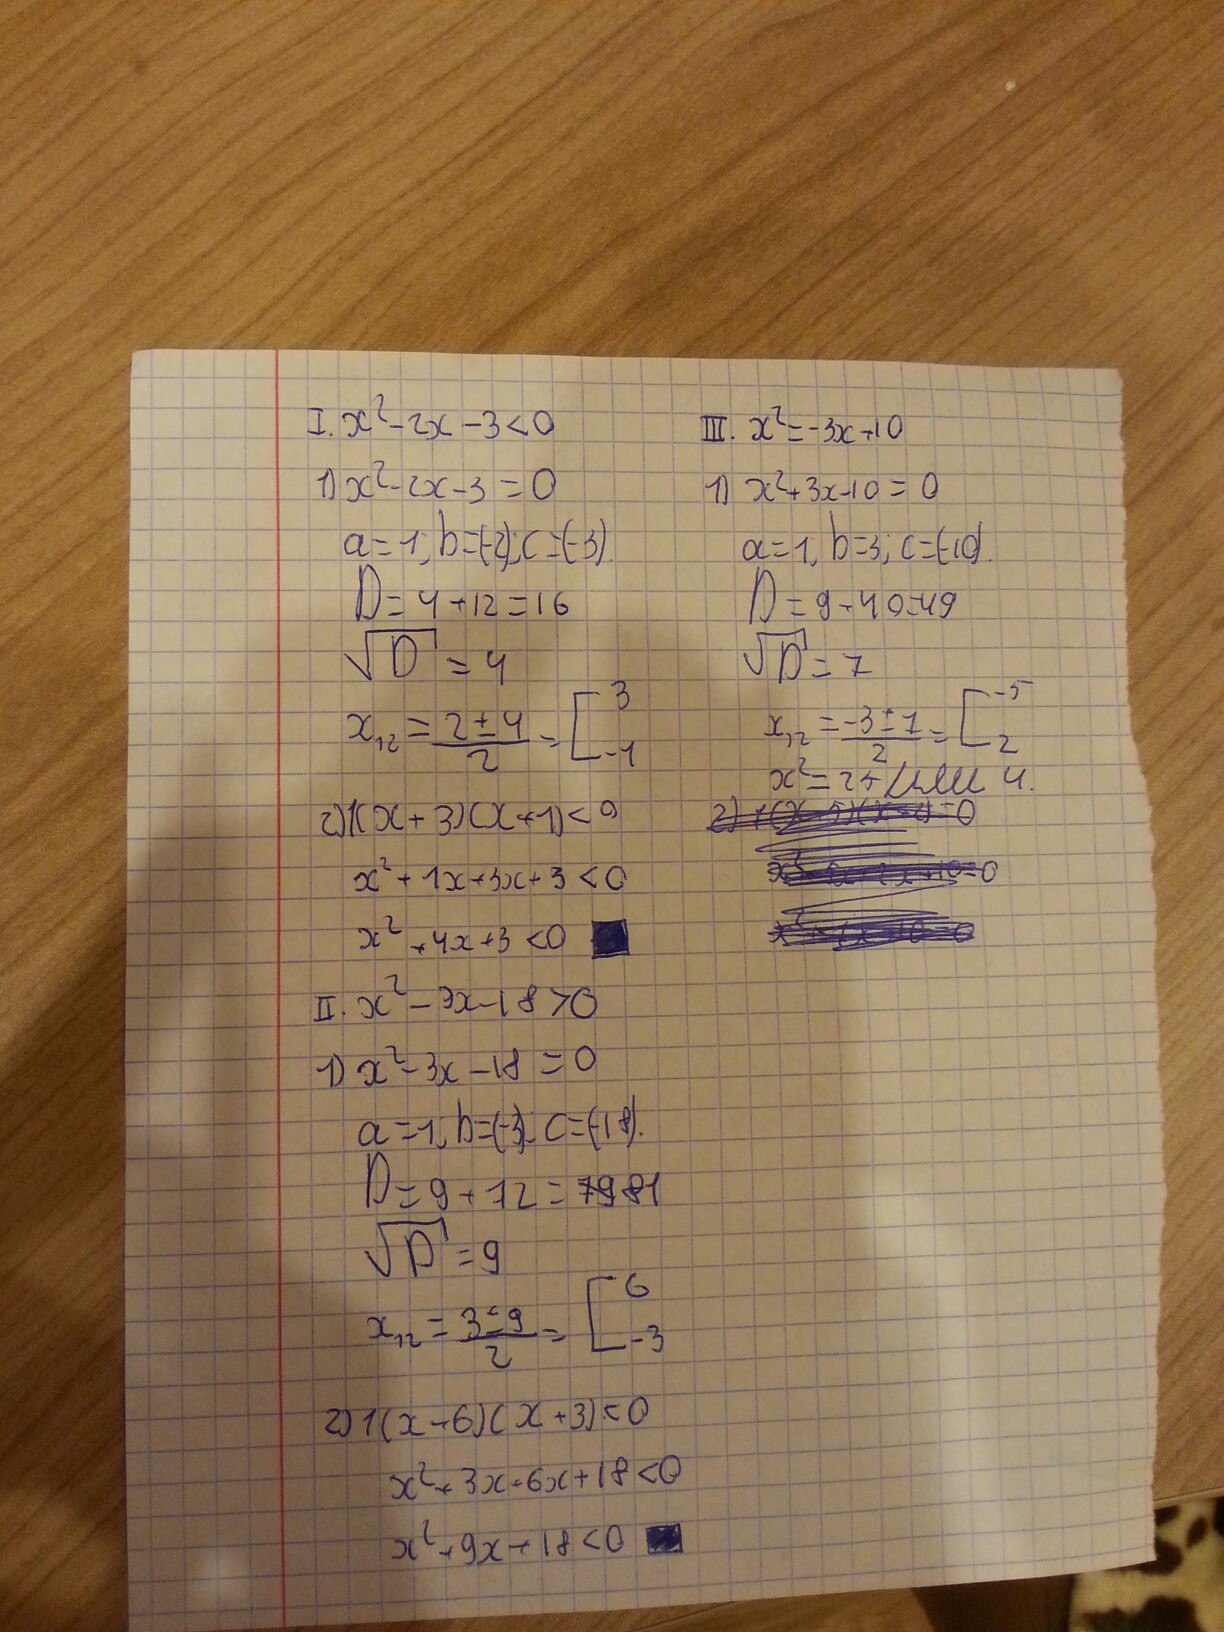 I. x²-2x-3<0
1) x²-2x-3=0
a=1; b=(-2); c=(-3).
D=4+12=16
√D=4
x₁,₂=(2±4)/2=[3 -1
2) 1(x+3)(x+1)<0
x²+1x+3x+3<0
x²+4x+3<0
II. x²-3x-18>0
1) x²-3x-18=0
a=1; b=(-3); c=(-18).
D=9+72=81
√D=9
x₁,₂=(3±9)/2=[6 -3
2) 1(x+6)(x+3)<0
x²+3x+6x+18<0
x²+9x+18<0
III. x²=-3x+10
1) x²+3x-10=0
a=1; b=3; c=(-10).
D=9+40=49
√D=7
x₁,₂=(-3±7)/2=[-5 2
x²=25 или 4.